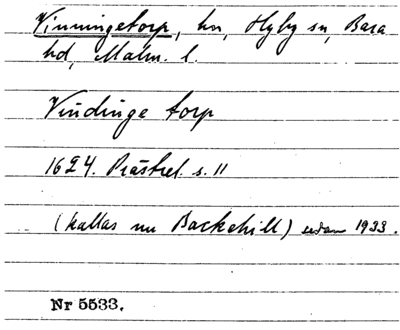 Vinningetorp, hn, Hyby sn, Bara
hd, Malm. l.
Vindinge torp
1624. Prästrel. s. 11
(kallas nu Backehill) sedan 1933.
Nr 5533.